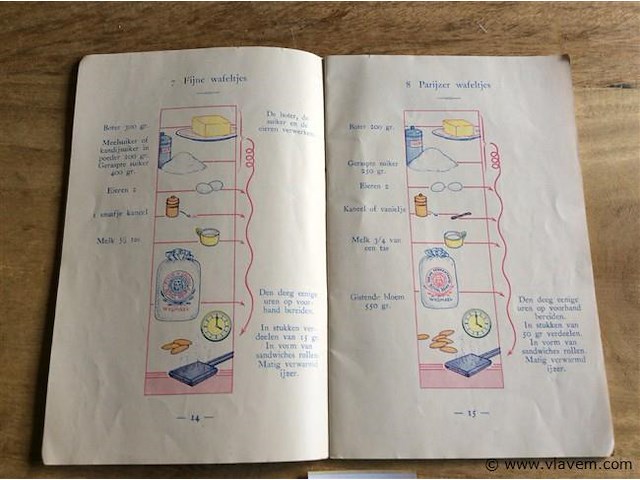 7 Fijne wafeltjes
Boter 300 gr.
Meelsuiker of
kandijsuiker in
poeder 200 gr.
Geraspte suiker
400 gr.
Eieren 2
1 snuifje kaneel
Melk ½ tas
De boter, de
suiker en de
eieren verwerken.
Den deeg eenige
uren op voor-
hand bereiden.
In stukken ver-
deelen van 15 gr.
In vorm van
sandwiches rollen.
Matig verwarmd
ijzer.
— 14 —
8 Parijzer wafeltjes
Boter 200 gr.
Geraspte suiker
250 gr.
Eieren 2
Kaneel of vanielje
Melk 3/4 van
een tas
Gistende bloem
550 gr.
Den deeg eenige
uren op voorhand
bereiden.
In stukken van
50 gr verdeelen.
In vorm van
sandwiches rollen.
Matig verwarmd
ijzer.
— 15 —
© www.vlavem.com